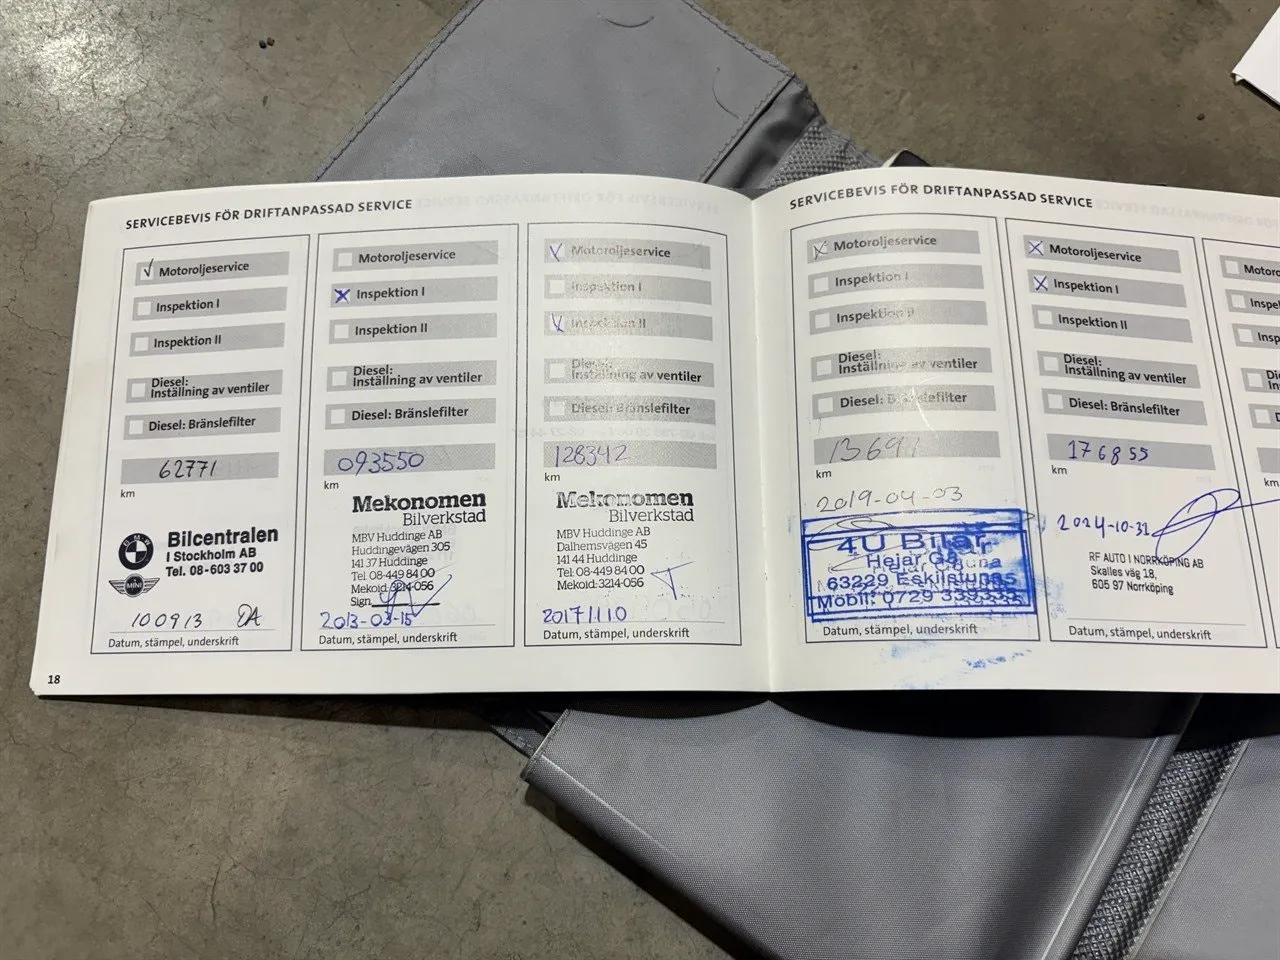 SERVICEBEVIS FÖR DRIFTANPASSAD SERVICE
Motoroljeservice
Inspektion I
Inspektion II
Diesel:
Inställning av ventiler
Diesel: Bränslefilter
62771
km
BMW
MINI
Bilcentralen
I Stockholm AB
Tel. 08-603 37 00
100913
Datum, stämpel, underskrift
18
Motoroljeservice
Inspektion I
Inspektion II
Diesel:
Inställning av ventiler
Diesel: Bränslefilter
093550
km
Mekonomen
Bilverkstad
MBV Huddinge AB
Huddingevägen 305
141 37 Huddinge
Tel 08-449 84 00
Mekoid: 3214-056
Sign
2013-03-15
Datum, stämpel, underskrift
Motoroljeservice
Inspektion I
Inspektion II
Diesel:
Inställning av ventiler
Diesel: Bränslefilter
128342
km
Mekonomen
Bilverkstad
MBV Huddinge AB
Dalhemsvägen 45
141 44 Huddinge
Tel 08-449 84 00
Mekoid: 3214-056
20171110
Datum, stämpel, underskrift
SERVICEBEVIS FÖR DRIFTANPASSAD SERVICE
Motoroljeservice
Inspektion I
Inspektion II
Diesel:
Inställning av ventiler
Diesel: Bränslefilter
km
2019-04-03
4U Bilar
63229 Eskilstuna
Mobil: 0729 339335
Datum, stämpel, underskrift
Motoroljeservice
Inspektion I
Inspektion II
Diesel:
Inställning av ventiler
Diesel: Bränslefilter
176855
km
2024-10-31
RF AUTO I NORRKÖPING AB
Skalles väg 18,
605 97 Norrköping
Datum, stämpel, underskrift
km